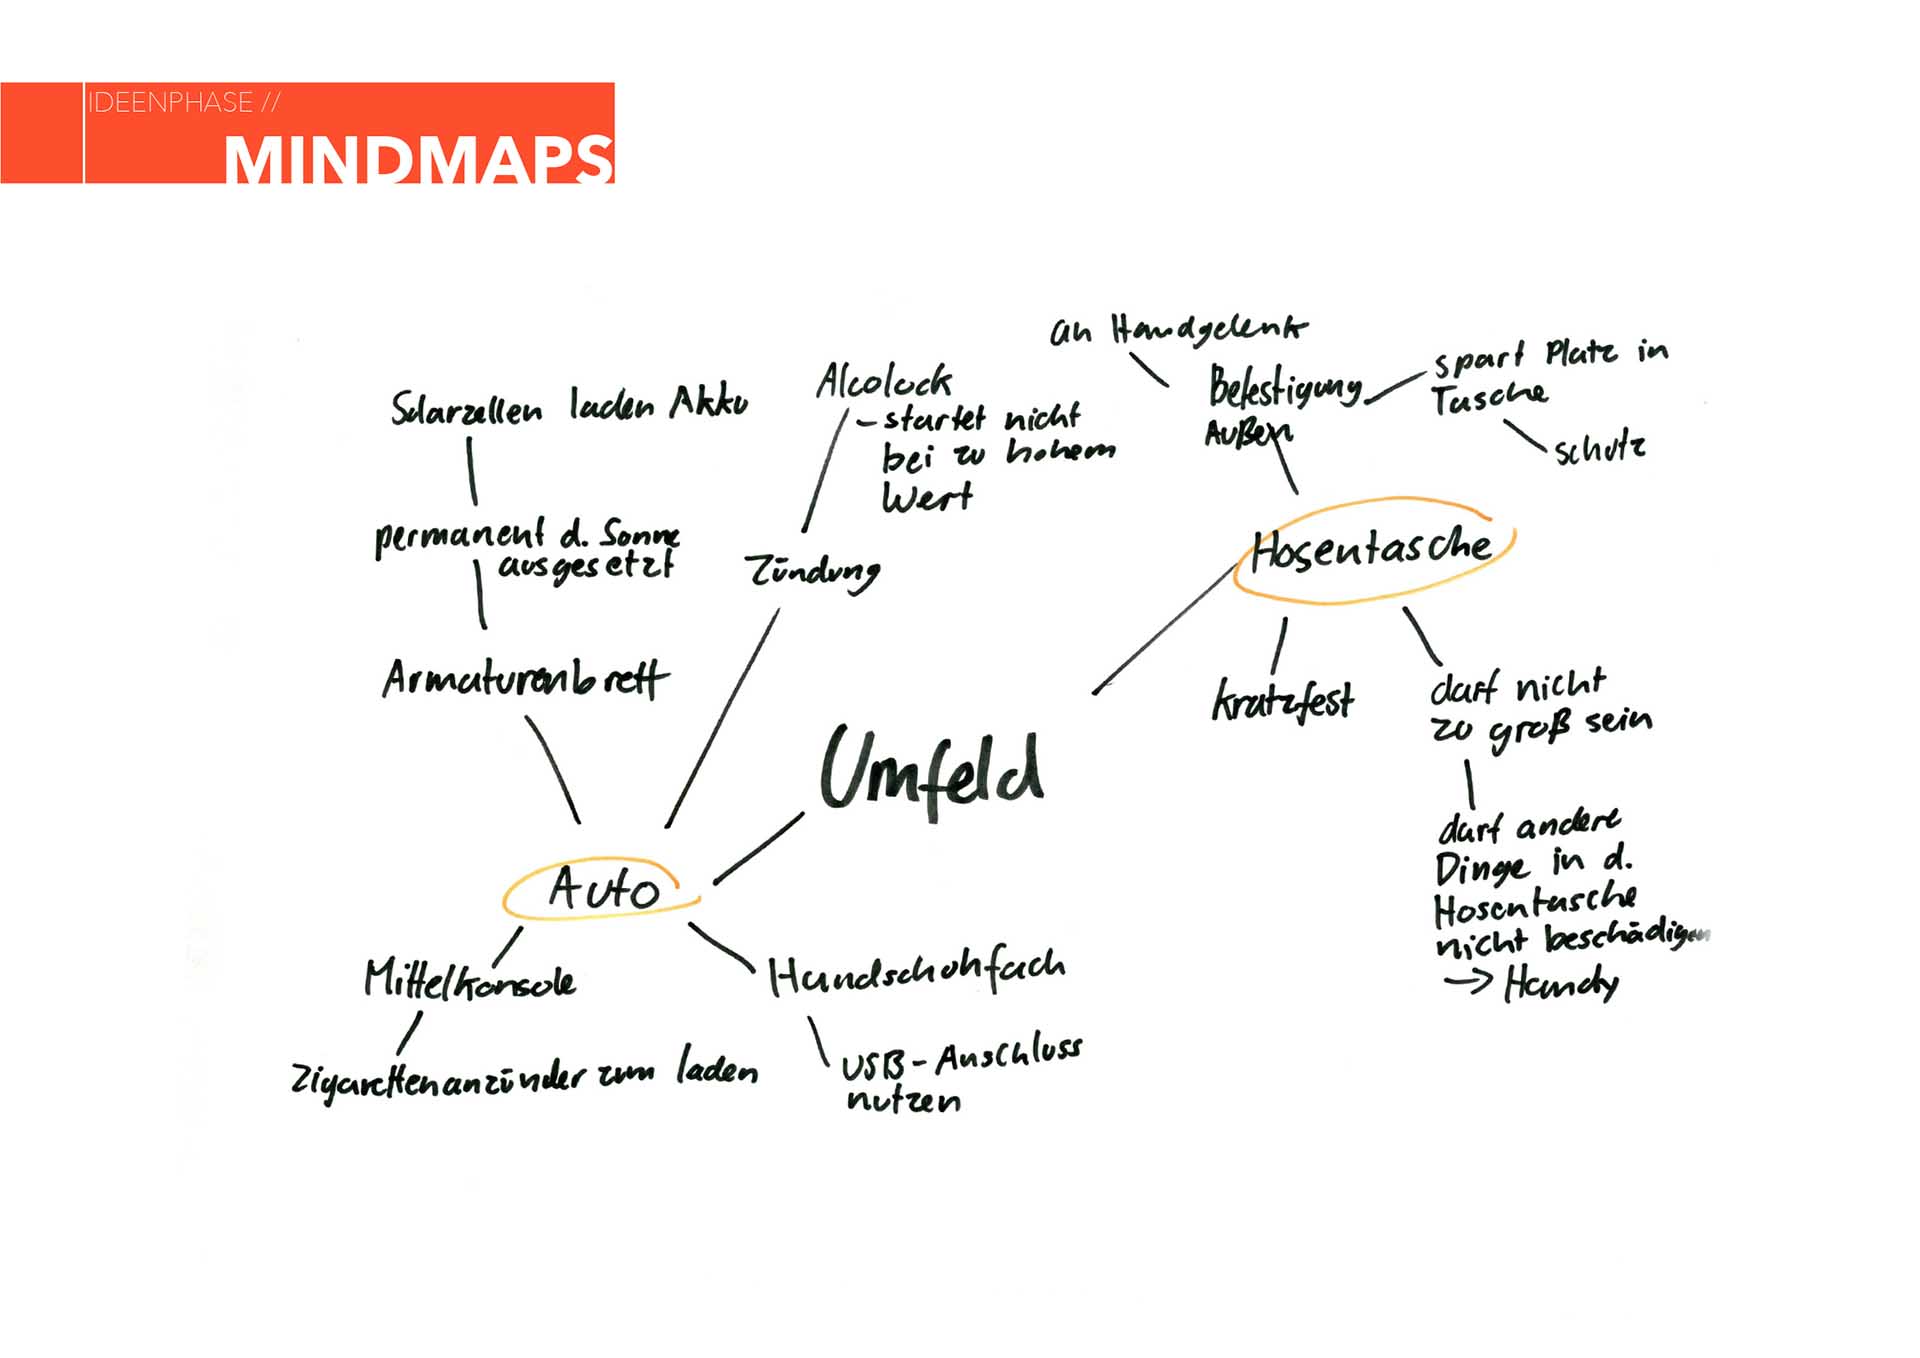 IDEENPHASE //
MINDMAPS
an Handgelenk
Befestigung
Außen
spart Platz in
Tasche
schutz
Alcolock
– startet nicht
bei zu hohem
Wert
Solarzellen laden Akku
permanent d. Sonne
ausgesetzt
Zündung
Armaturenbrett
Hosentasche
kratzfest
darf nicht
zu groß sein
darf andere
Dinge in d.
Hosentasche
nicht beschädigen
→ Handy
Umfeld
Auto
Mittelkonsole
Zigarettenanzünder zum laden
Handschuhfach
USB-Anschluss
nutzen